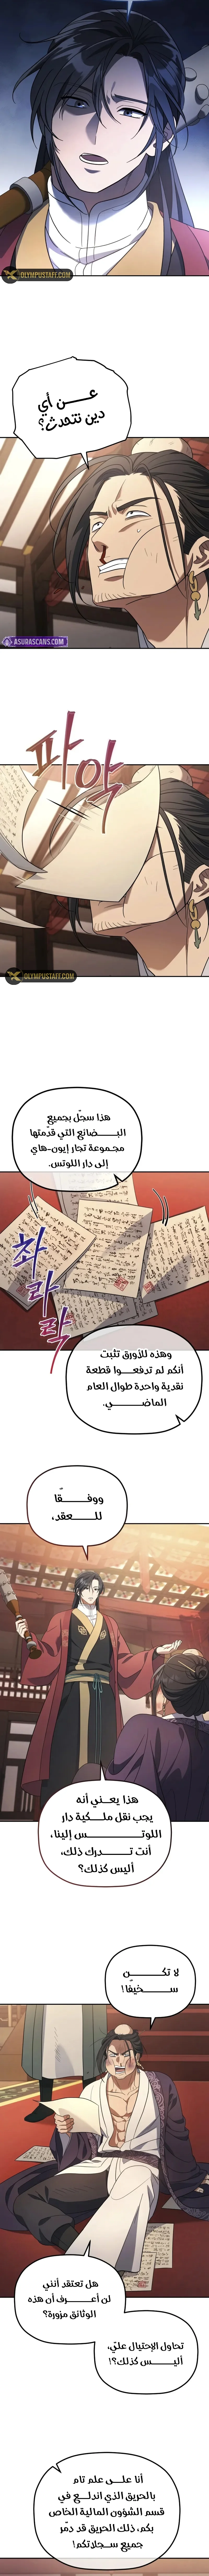 OLYMPUSTAFF.COM
عـــن أي
دين نتحدث؟
ASURASCANS.COM
파악
OLYMPUSTAFF.COM
هذا سجلّ بجميع
البـــــضائع التي قدّمتها
مجـموعة تجار إيون-هاي
إلى دار اللوتس.
촤라락
وهذه للأورق تثبت
أنكم لم تدفعـــوا قطعة
نقدية واحدة طوال العام
الماضـــــــي.
ووفـــــــقًا
للـــــعقد،
هذا يعـــني أنه
يجب نقل ملـــكية دار
اللوتـــــــــــس إلينا،
أنت تـــــدرك ذلك،
أليس كذلك؟
لا تكـــــــن
ســـــخيفًا!
هل تعتقد أنني
لن أعـــــرف أن هذه
الوثائق مزورة؟
تحاول الإحتيال عليّ،
أليــــس كذلك؟!
أنا علـــى علم تام
بالحريق الذي اندلـــع في
قسم الشؤون المالية الخاص
بكم، ذلك الحريق قد دمّر
جميع سـجلاتكم!